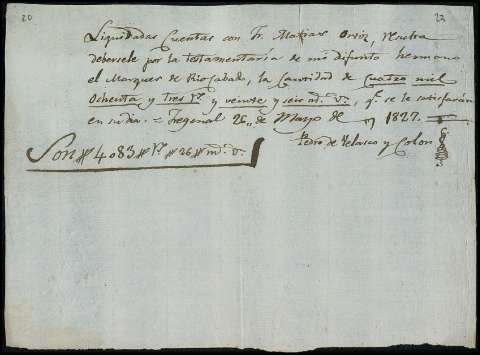 20
22
Liquidadas Cuentas con Fr. Matias Ortiz, resulta
debersele por la testamentaría de mi difunto hermano
el Marques de Riocabado, la Cantidad de Cuatro mil
Ochenta y tres rs. y veinte y seis md. vn., qe. se le satisfarán
en su dia. = Fregenal 26,, de Mayo de 1827. =
Son # 4083 # rs. # 26 # md. vn.
Pedro de Velasco y Colon